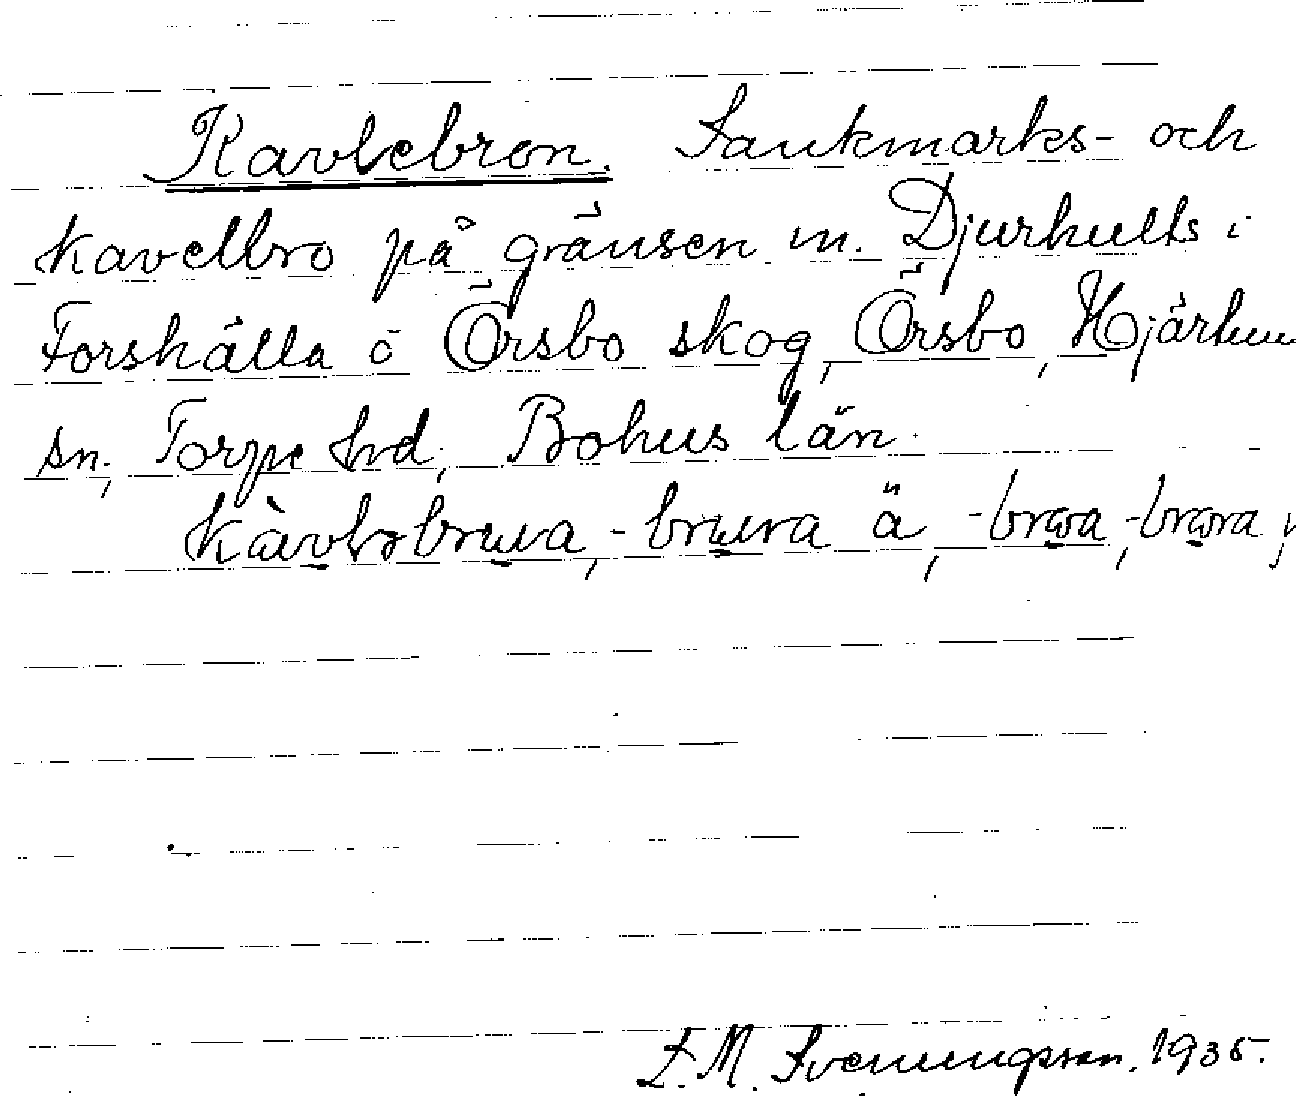 Kavlebron. Sankmarks- och
kavelbro på gränsen m. Djurhults i
Forshälla o Örsbo skog, Örsbo, Hjärtum
sn, Torpe hd, Bohus län.
kàvləbruua, -bruura ä,
L. M. Svenungsson. 1935.